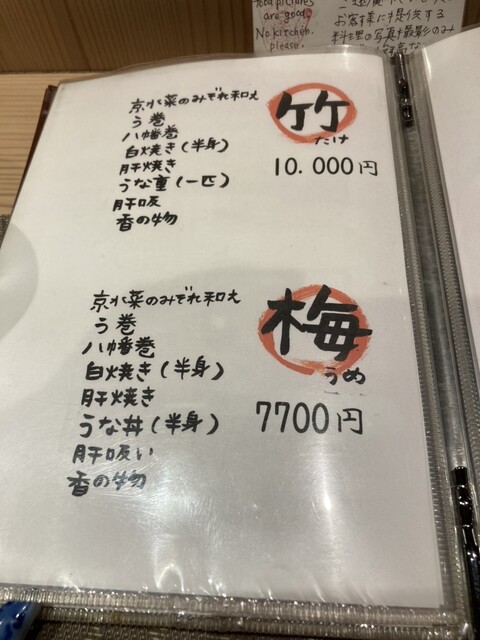 food pictures
are good.
No kitchen,
please.
お客様に提供する
料理の写真撮影のみ
京水菜のみぞれ和え
う巻
八幡巻
白焼き(半身)
肝焼き
うな重(一匹)
肝吸
香の物
竹
たけ
10.000円
京水菜のみぞれ和え
う巻
八幡巻
白焼き(半身)
肝焼き
うな丼(半身)
肝吸い
香の物
梅
うめ
7700円